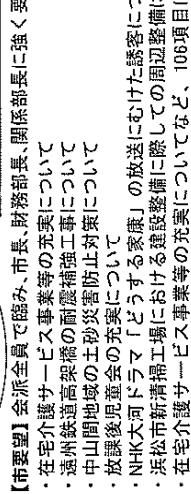 【市要望】会派全員で臨み、市長、財務部長、関係部長に強く要
・在宅介護サービス事業等の充実について
・遠州鉄道高架橋の耐震補強工事について
・中山間地域の土砂災害防止対策について
・放課後児童会の充実について
・NHK大河ドラマ「どうする家康」の放送にむけた誘客につ
・浜松市新清掃工場における建設整備に際しての周辺整備に
・在宅介護サービス事業等の充実についてなど、106項目に